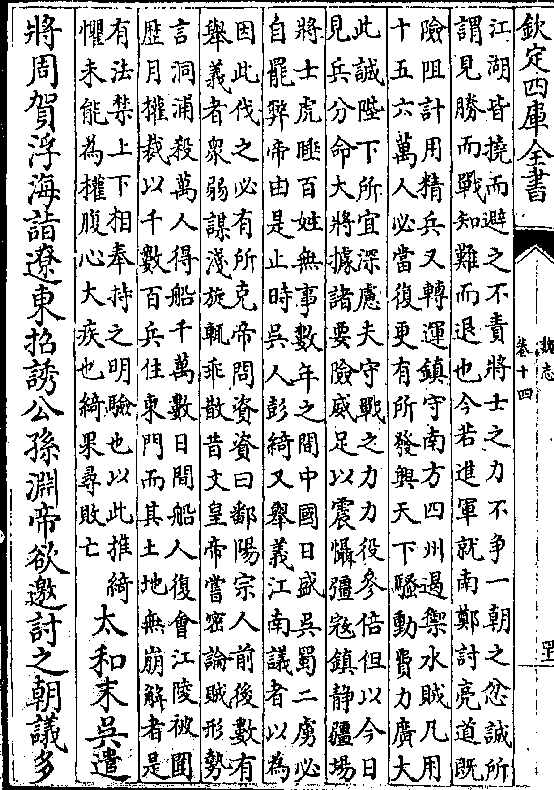 欽定四庫全書
魏志
卷十四
江湖皆撓而避之不責將士之力不争一朝之忿誠所
謂見勝而戰知難而退也今若進軍就南鄭討亮道既
險阻計用精兵又轉運鎮守南方四州遏禦水賊凡用
十五六萬人必當復更有所發興天下騷動費力廣大
此誠陛下所宜深慮夫守戰之力力役參倍但以今日
見兵分命大將據諸要險威足以震懾彊寇鎮静疆埸
將士虎睡百姓無事數年之間中國日盛吳蜀二虜必
自罷弊帝由是止時吳人彭綺又舉義江南議者以為
因此伐之必有所克帝問資資曰鄱陽宗人前後數有
舉義者衆弱謀淺旋輒乖散昔文皇帝嘗密論賊形勢
言洞浦殺萬人得船千萬數日間船人復會江陵被圍
歷月權裁以千數百兵住東門而其土地無崩解者是
有法禁上下相奉持之明驗也以此推綺
懼未能為權腹心大疾也綺果尋敗亡
太和末吳遣
將周賀浮海詣遼東招誘公孫淵帝欲邀討之朝議多